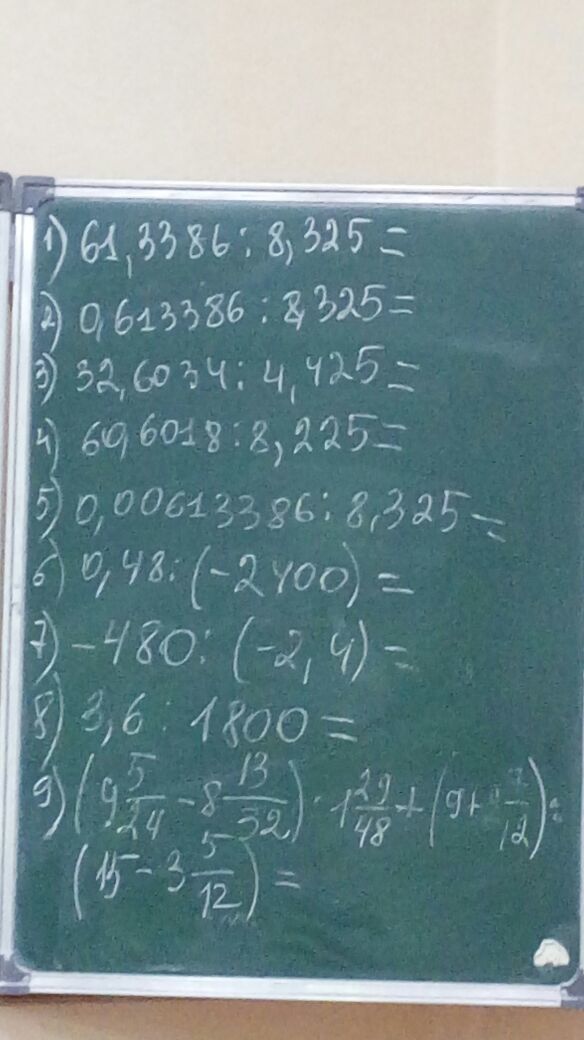 1) 61,3386 : 8,325 =
2) 0,613386 : 8,325 =
3) 32,6034 : 4,425 =
4) 60,6018 : 8,225 =
5) 0,00613386 : 8,325 =
6) 0,48 : (-2400) =
7) -480 : (-2,4) =
8) 3,6 : 1800 =
9) (9 5/24 - 8 13/32) · 1 29/48 + (9 + 7/12) :
(15 - 3 5/12) =